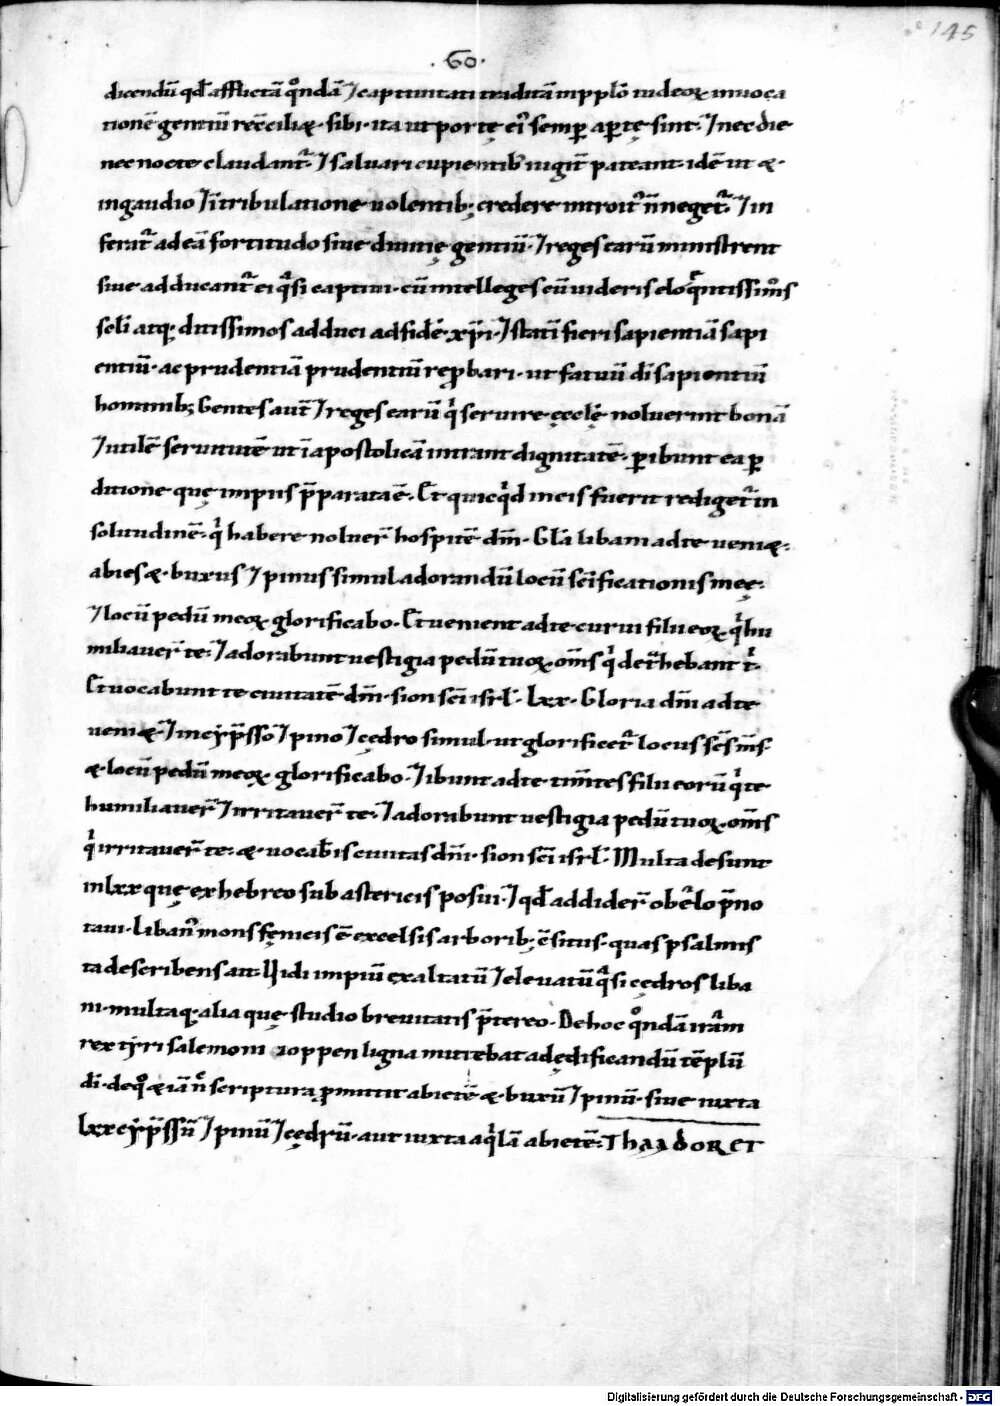 145
.60.
dicendū qd̄ afflictā q°ndā ⁊ captiuitati traditā in pp̄lo iudeoꝝ in uoca
tionē gentiū rec̄ciliæ· sibi· ita ut portę ei' semꝑ aꝑtę sint· ⁊ nec die
nec nocte claudant᷑· ⁊ saluari cupientib; iugit᷑ pateant· idē ut &·
in gaudio ⁊ ī tribulatione uolentib; credere introit' n̄ neget᷑· ⁊ in
ferat᷑ ad eā fortitudo siue diuitię gentiū· ⁊ reges earū ministrent
siue adducant᷑ ei q̾si captiui· cū intelleges cū uideris eloq̾ntissimos
sc̄li atq; ditissimos adduci ad fidē· xp̄i· ⁊ statī fieri sapientiā sapi
entiū· ac prudentiā prudentiū rep̄bari· ut fatuū dī sapientiū
hominib; Gentes aut̄ ⁊ reges earū qi seruire ęcclę̄ noluerint bonā
⁊ utilē seruitutē ut ī apostolicā intrant dignitatē· ꝑibunt ea ꝑ
ditione quę impiis p̄parata ē· Et quicqid in eis fuerit rediget᷑ in
solitudinē· qi habere noluer̄ hospitē dm̄· Glā libani ad te ueni&·
abies &· buxus ⁊ pinus simul adorandū locū sc̄ificationis meę·
⁊ locū pedū meoꝝ glorificabo· Et uenient ad te curui filii eoꝝ qi hu
miliauer̄ te· ⁊ adorabunt uestigia pedū tuoꝝ· om̄s qi det̾hebant ti·
Et uocabunt te ciuitatē dm̄· sion sc̄i isrl̄· lxx· Gloria dm̄ ad te
ueni&· ⁊ in cyp̄sso ⁊ pino ⁊ cędro simul· ut glorificet᷑ locus sc̄s m̄s·
& locū pedū meoꝝ glorificabo· ⁊ ibunt ad te· tim̄tes filii eorū qi te
humiliauer̄ ⁊ irritauer̄ te· ⁊ adorabunt uestigia pedū tuoꝝ· om̄s
qi irritauer̄ te· &· uocab̄is ciuitas dm̄i· sion sc̄i isrl̄· Multa desunt
in lxx quę ex hebreo sub astericis posui· ⁊ qd̄ addider̄ obelo p̄no
taui· Liban' mons fęnicis ē excelsis arborib; c̄situs· quas psalmis
ta describens ait· Uidi impiū exaltatū ⁊ eleuatū q̾si cędros liba
ni· multaq; alia quę studio breuitatis p̄tereo· De hoc q°ndā iram
rex tyri salemoni ioppen ligna mittebat ad ędificandū tēplū
dī· de q° & iā n° scriptura ꝓmittit abietē &· buxū ⁊ pinū· siue iuxta
lxx cyp̄ssū ⁊ pinū ⁊ cędrū· aut iuxta aqilā abietē· ThaadORET
Digitalisierung gefördert durch die Deutsche Forschungsgemeinschaft · DFG